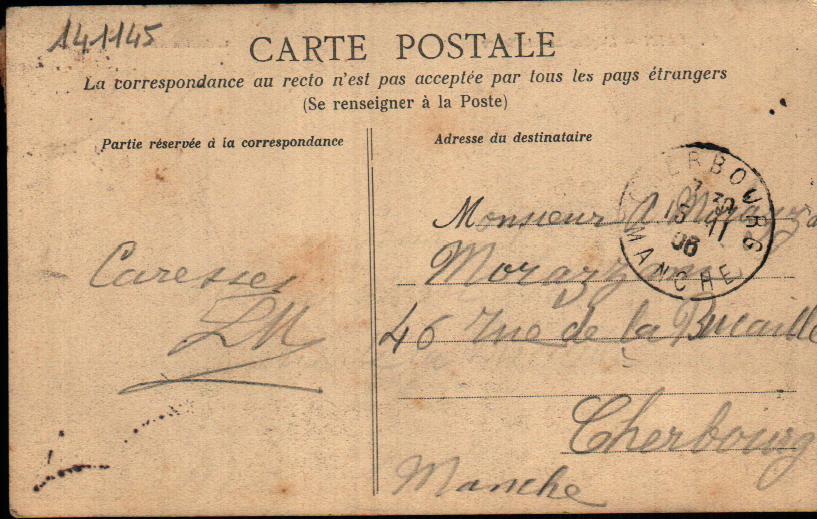 141145
CARTE POSTALE
La correspondance au recto n'est pas acceptée par tous les pays étrangers
(Se renseigner à la Poste)
Partie réservée à la correspondance
Adresse du destinataire
CHERBOURG
15 11
06
MANCHE
Monsieur
Caresses
LM
46 rue de la Bucaille
Cherbourg
Manche